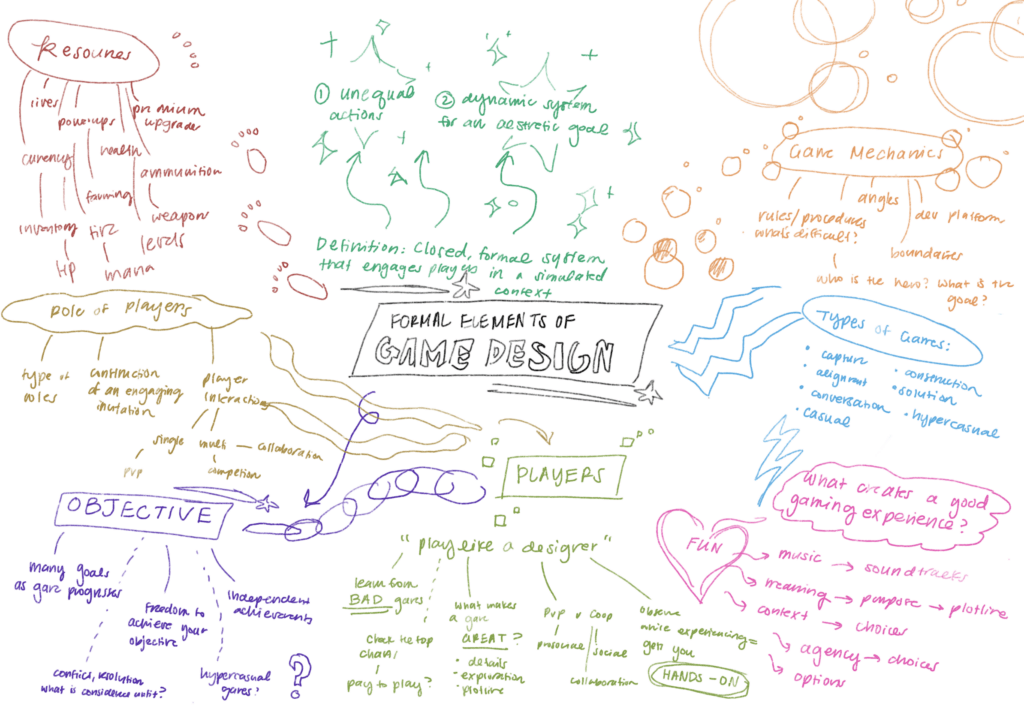 Resources
lives
power-ups
premium
upgrades
currency
health
ammunition
farming
inventory
weapons
levels
HP
mana
① unequal
actions
② dynamic system
for an aesthetic goal
Definition: Closed, formal system
that engages players in a simulated
context
FORMAL ELEMENTS OF
GAME DESIGN
Game Mechanics
rules/procedures
what's difficult?
angles
dev platform
boundaries
who is the hero? What is the
goal?
Types of Games:
• capture
• alignment
• conversation
• casual
• construction
• solution
• hypercasual
Role of players
type of
roles
construction
of an engaging
player
interactions
single
multi — collaboration
PVP
OBJECTIVE
many goals
as game progresses
Freedom to
achieve your
objective
independent
achievements
conflict, resolution
hypercasual
games?
?
PLAYERS
"play like a designer"
learn from
BAD games
check the top
charts
pay to play?
what makes
a game
GREAT?
• details
• exploration
• plotline
PVP v Coop
personal
social
collaboration
observe
while experiencing =
gets you
HANDS-ON
What creates a good
gaming experience?
FUN
→ music → soundtracks
→ meaning → purpose → plotline
→ context → choices
→ agency → choices
→ options